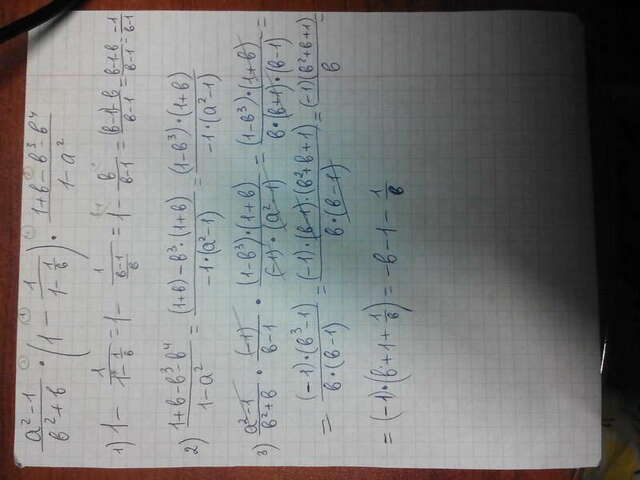 (a²-1)/(в²+в) · (1 - 1/(1 - 1/в)) · (1+в-в³-в⁴)/(1-a²)
1) 1 - 1/(1 - 1/в) = 1 - 1/((в-1)/в) = 1 - в/(в-1) = ((в-1)-в)/(в-1) = (в-1-в)/(в-1) = -1/(в-1)
2) (1+в-в³-в⁴)/(1-a²) = ((1+в)-в³·(1+в))/(-1·(a²-1)) = ((1-в³)·(1+в))/(-1·(a²-1))
3) (a²-1)/(в²+в) · (-1)/(в-1) · ((1-в³)·(1+в))/((-1)·(a²-1)) = ((1-в³)·(1+в))/(в·(в+1)·(в-1)) =
= ((-1)·(в³-1))/(в·(в-1)) = ((-1)·(в-1)·(в²+в+1))/(в·(в-1)) = ((-1)(в²+в+1))/в =
= (-1)·(в+1+1/в) = -в-1-1/в